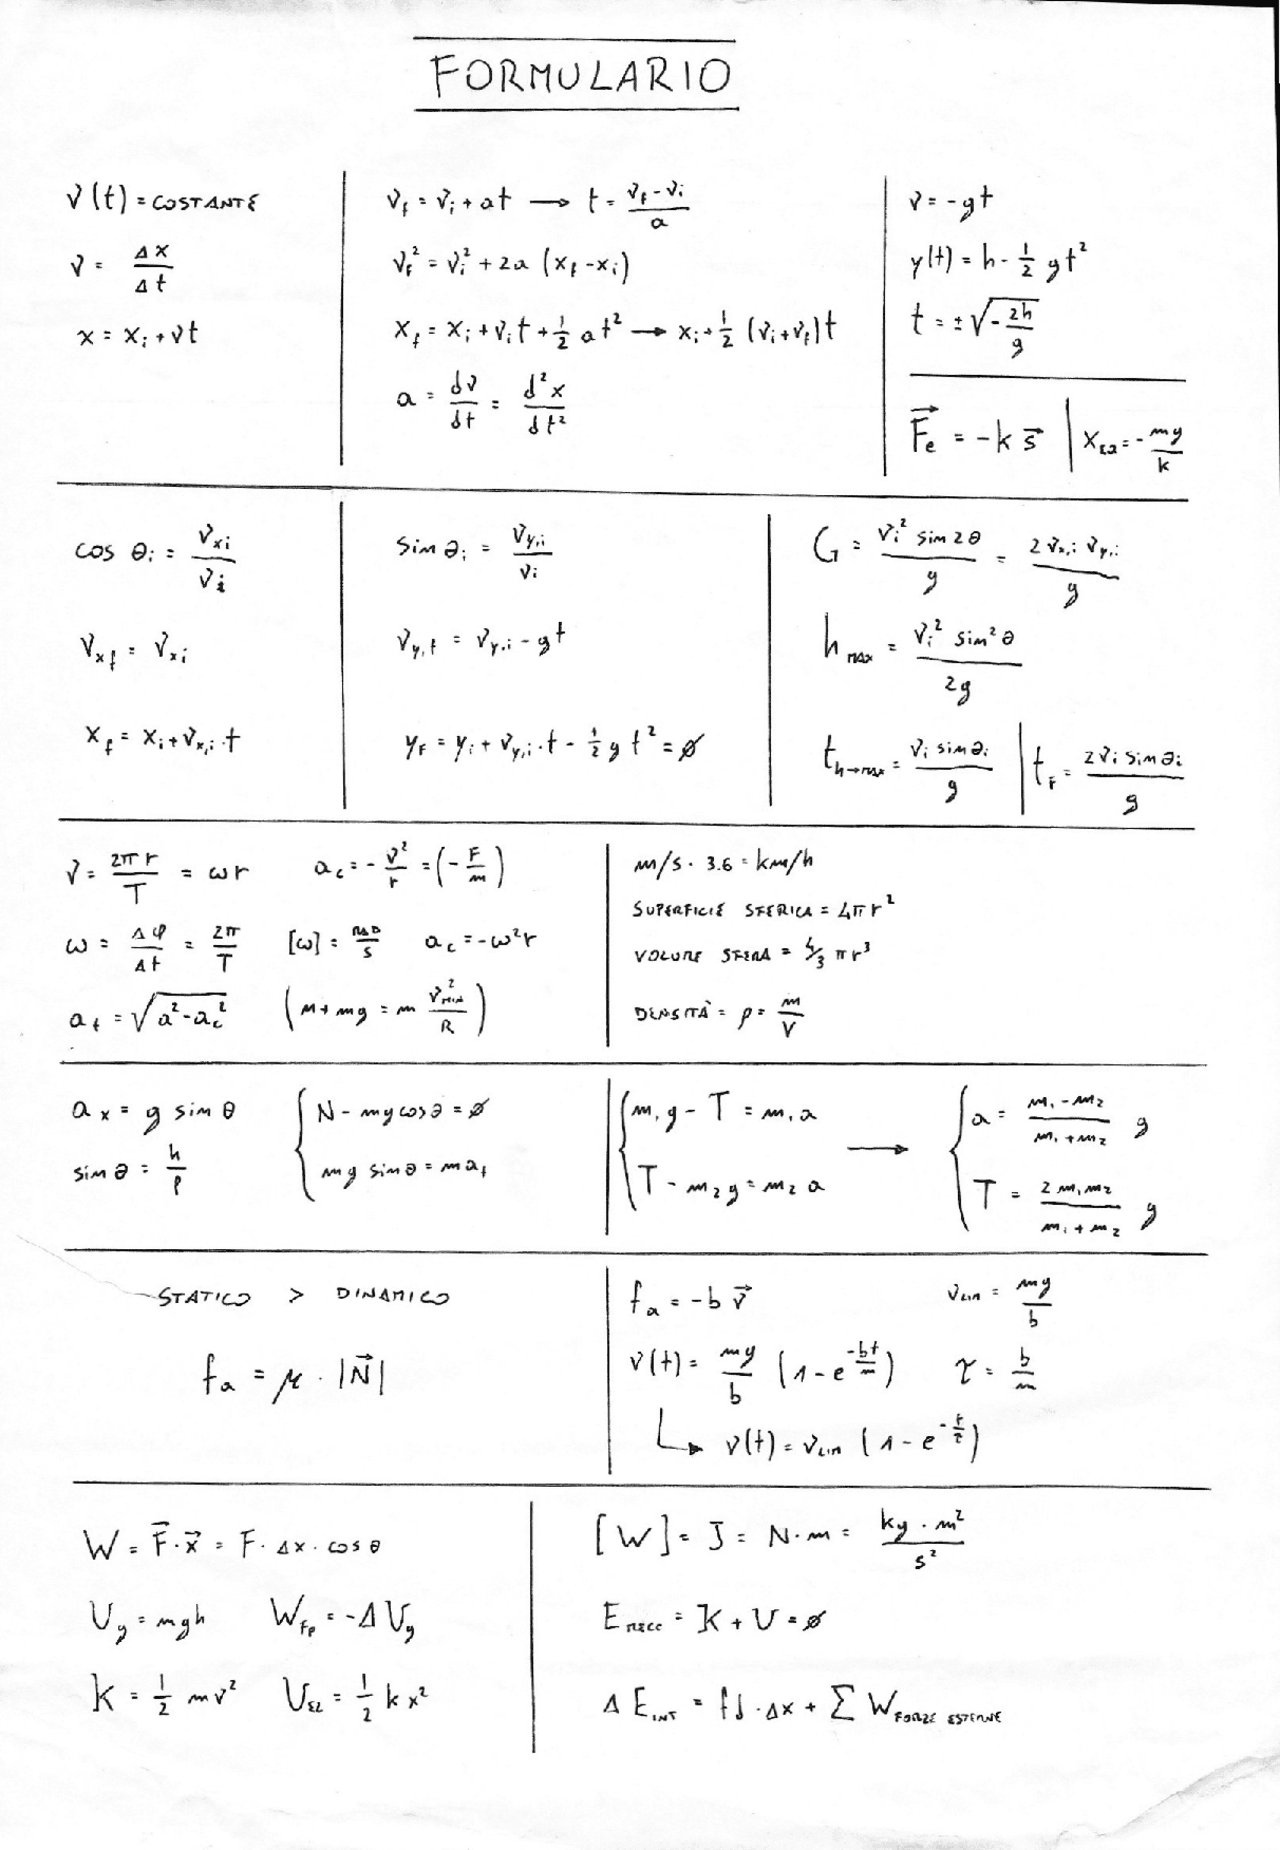 FORMULARIO
v(t) = COSTANTE
v = Δx/Δt
x = x_i + vt
v_f = v_i + at → t = (v_f - v_i)/a
v_f² = v_i² + 2a (x_f - x_i)
x_f = x_i + v_i t + 1/2 at² → x_i + 1/2 (v_i + v_f)t
a = dv/dt = d²x/dt²
v = -gt
y(t) = h - 1/2 gt²
t = ±√(-2h/g)
F⃗_e = -k s⃗ | x_EQ = -mg/k
cos θ_i = v_xi/v_i
v_xf = v_xi
x_f = x_i + v_x,i · t
sin θ_i = v_y,i/v_i
v_y,f = v_y,i - gt
y_F = y_i + v_y,i · t - 1/2 g t² = ∅
G = v_i² sin 2θ/g = 2 v_x,i v_y,i/g
h_MAX = v_i² sin² θ/2g
t_h→MAX = v_i sin θ_i/g | t_F = 2 v_i sin θ_i/g
v = 2πr/T = ωr a_c = -v²/r = (-F/m)
ω = Δφ/Δt = 2π/T [ω] = RAD/s a_c = -ω²r
a_t = √(a² - a_c²) (n + mg = m v_MIN²/R)
m/s · 3.6 = km/h
SUPERFICIE SFERICA = 4πr²
VOLUME SFERA = 4/3 πr³
DENSITÀ = ρ = m/V
a_x = g sin θ
sin θ = h/l
{ N - mg cos θ = ∅
mg sin θ = ma_t
{ m₁g - T = m₁a
T - m₂g = m₂a
→
{ a = (m₁ - m₂)/(m₁ + m₂) g
T = 2 m₁m₂/(m₁ + m₂) g
STATICO > DINAMICO
f_a = μ · |N⃗|
f_a = -b v⃗ v_LIM = mg/b
v(t) = mg/b (1 - e^(-bt/m)) τ = b/m
↳ v(t) = v_LIM (1 - e^(-t/τ))
W = F⃗ · x⃗ = F · Δx · cos θ
U_g = mgh W_Fp = -ΔU_g
K = 1/2 mv² U_EL = 1/2 k x²
[W] = J = N·m = kg · m²/s²
E_MECC = K + U = ∅
ΔE_INT = fd · Δx + Σ W_FORZE ESTERNE